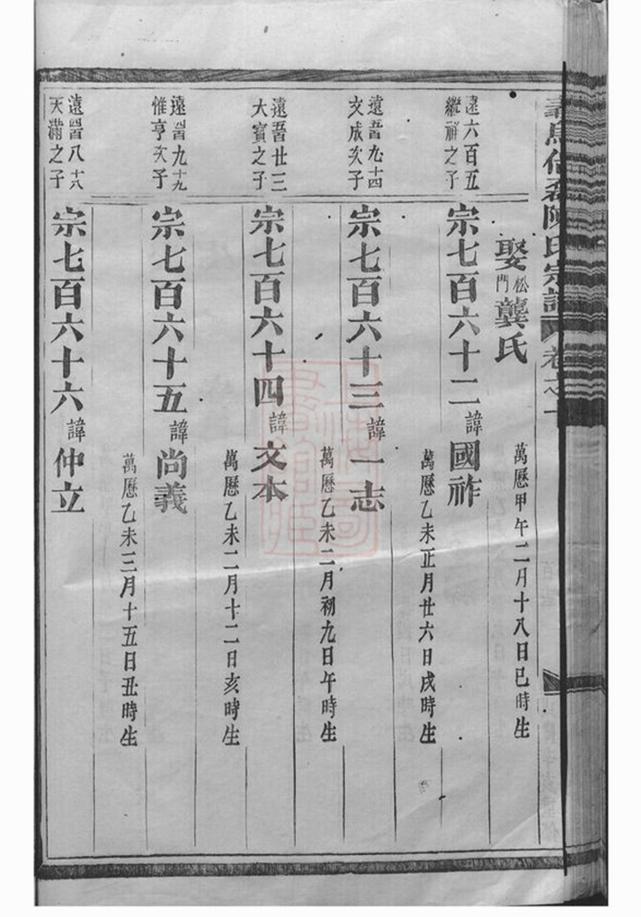 陳氏宗譜
娶松門龔氏
萬歷甲午二月十八日巳時生
遠六百五
繼祥之子
宗七百六十二諱國祚
萬歷乙未正月廿六日戌時生
遠晉九十四
文成次子
宗七百六十三諱一志
萬歷乙未二月初九日午時生
遠晉廿三
大賓之子
宗七百六十四諱文本
萬歷乙未二月十二日亥時生
遠晉九十九
惟亨次子
宗七百六十五諱尚義
萬歷乙未三月十五日丑時生
遠晉八十八
天滿之子
宗七百六十六諱仲立